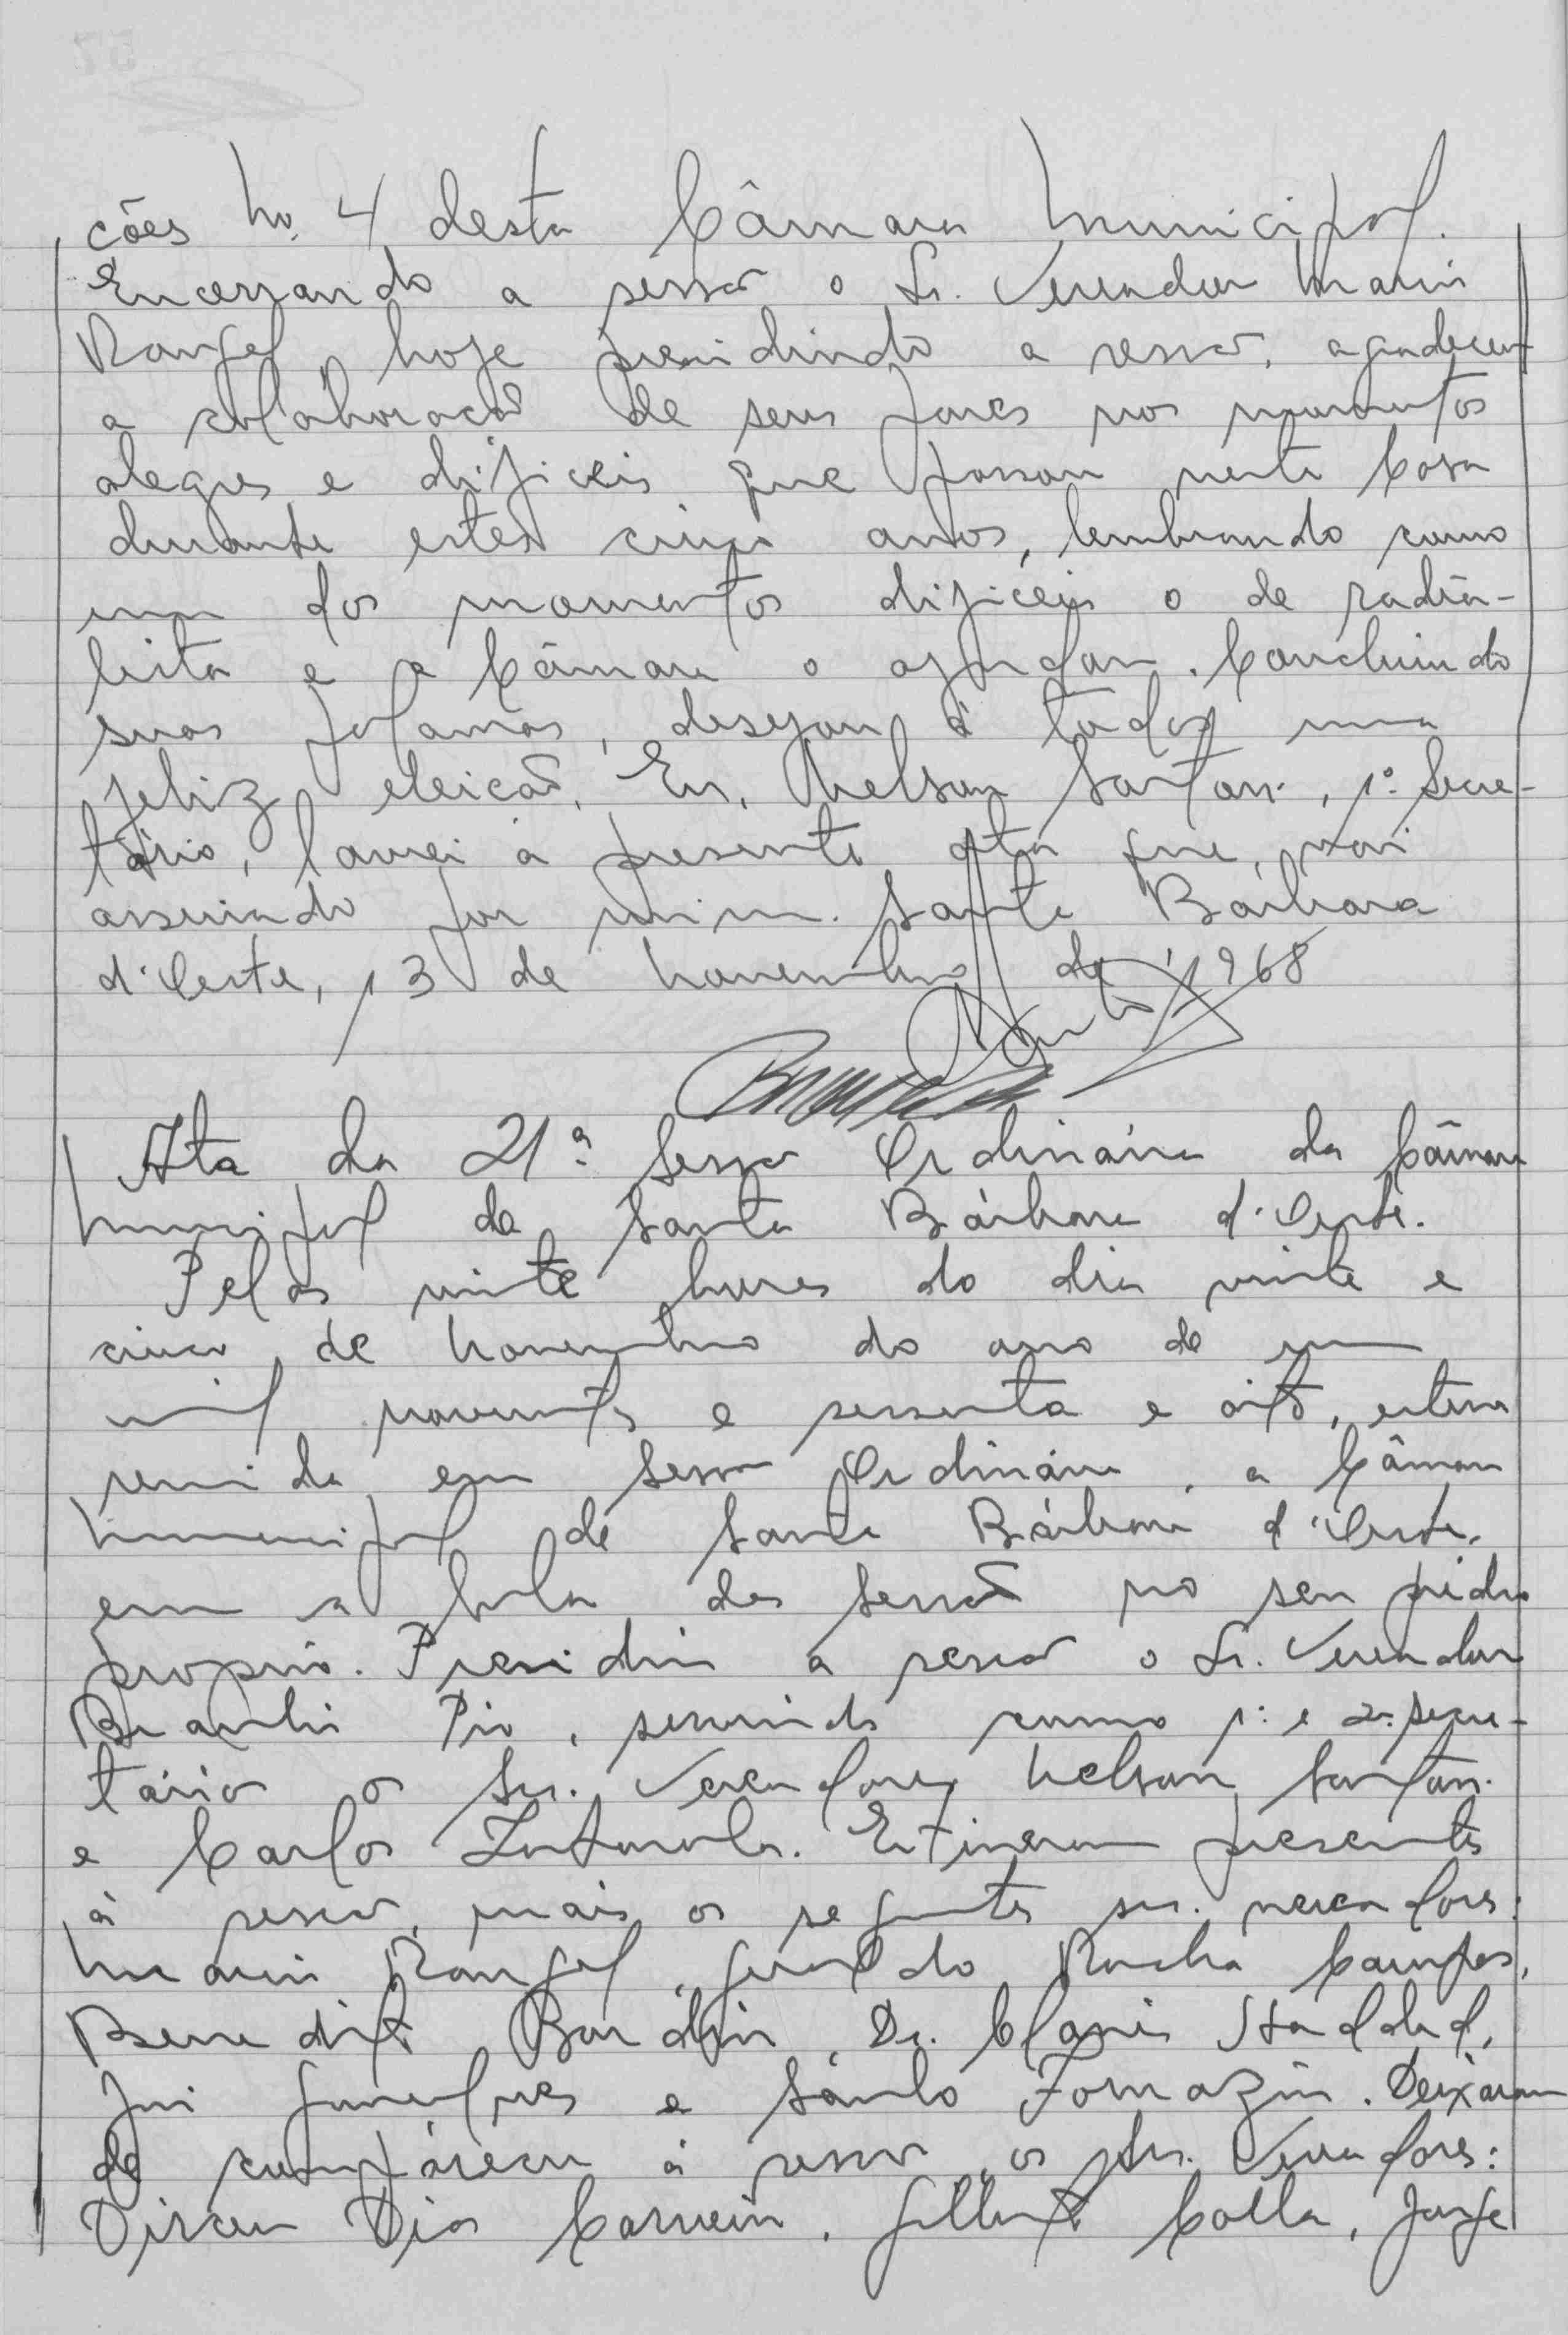 ções no. 4 desta Câmara Municipal.
Encerrando a sessão o Sr. Vereador Mario
Rangel, hoje presidindo a sessão, agradeceu
a colaboração de seus pares nos momentos
alegres e dificeis que passou nesta Casa
durante estes cinco anos, lembrando como
um dos momentos dificeis o de radia-
lista e a Câmara o ajudou. Concluindo
suas palavras, desejou à todos uma
feliz eleição. Eu, Nelson Santan, 1º Secre-
tário, lavrei a presente ata que, vai
assinado por mim. Santa Bárbara
d'Oeste, 13 de novembro de 1968
Ata da 21ª Sessão Ordinária da Câmara
Municipal de Santa Bárbara d'Oeste.
Pelas vinte horas do dia vinte e
cinco de novembro do ano de um
mil novecentos e sessenta e oito, esteve
reunida em Sessão Ordinária, a Câmara
Municipal de Santa Bárbara d'Oeste,
em a Sala das Sessão no seu prédio
proprio. Presidiu a sessão o Sr. Vereador
Braulio Pio, servindo como 1º e 2º secre-
tário os Srs. Vereadores Nelson Santan
e Carlos. Estiveram presentes
à sessão, mais os seguintes srs. vereadores:
Mario Rangel, Geraldo Rocha Campos,
Benedito Bordin, Dr. Clovis Haddad,
e Santo Tomazin. Deixaram
de comparecer à sessão os srs. Vereadores:
Dirceu Dias Carneiro, Gilberto Colla, Jorge